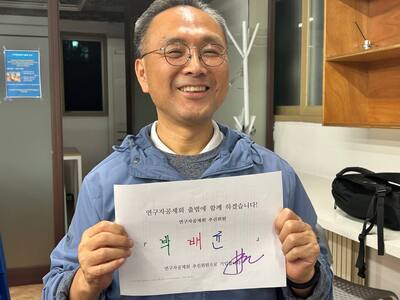 연구자공제회 출범에 함께 하겠습니다!
연구자공제회 추진위원
「 박 배 균 」
연구자공제회 추진위원으로